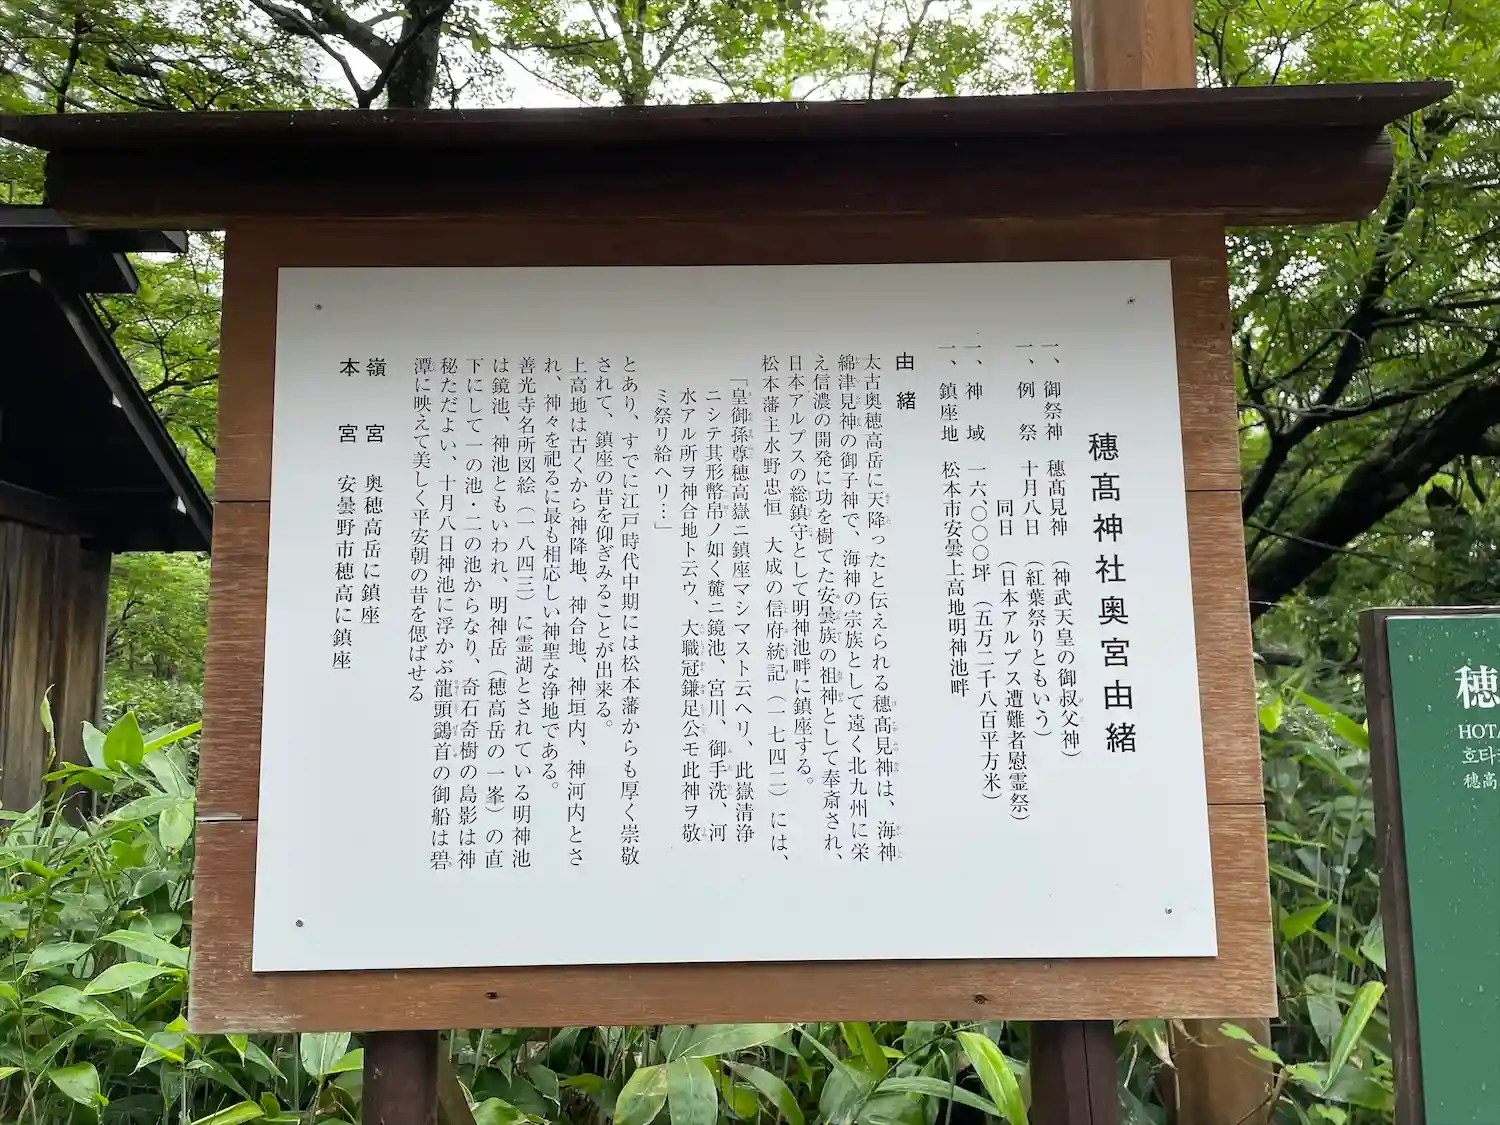 穗髙神社奥宮由緒
一、御祭神　穗髙見神　（神武天皇の御叔父神）
一、例　祭　十月八日　（紅葉祭りともいう）
同日　（日本アルプス遭難者慰霊祭）
一、神　域　一六、〇〇〇坪　（五万二千八百平方米）
一、鎮座地　松本市安曇上高地明神池畔
由緒
太古奥穂高岳に天降ったと伝えられる穗髙見神は、海神
綿津見神の御子神で、海神の宗族として遠く北九州に栄
え信濃の開発に功を樹てた安曇族の祖神として奉斎され、
日本アルプスの総鎮守として明神池畔に鎮座する。
松本藩主水野忠恒　大成の信府統記（一七四二）には、
「皇御孫尊穂高嶽ニ鎮座マシマスト云ヘリ、此嶽清浄
ニシテ其形幣帛ノ如く麓ニ鏡池、宮川、御手洗、河
水アル所ヲ神合地ト云ウ、大職冠鎌足公モ此神ヲ敬
ミ祭リ給ヘリ…」
とあり、すでに江戸時代中期には松本藩からも厚く崇敬
されて、鎮座の昔を仰ぎみることが出来る。
上高地は古くから神降地、神合地、神垣内、神河内とさ
れ、神々を祀るに最も相応しい神聖な浄地である。
善光寺名所図絵（一八四三）に霊湖とされている明神池
は鏡池、神池ともいわれ、明神岳（穂高岳の一峯）の直
下にして一の池・二の池からなり、奇石奇樹の島影は神
秘ただよい、十月八日神池に浮かぶ龍頭鷁首の御船は碧
潭に映えて美しく平安朝の昔を偲ばせる
嶺　宮　奥穂高岳に鎮座
本　宮　安曇野市穂高に鎮座
穂
HOTA
호타
穂高